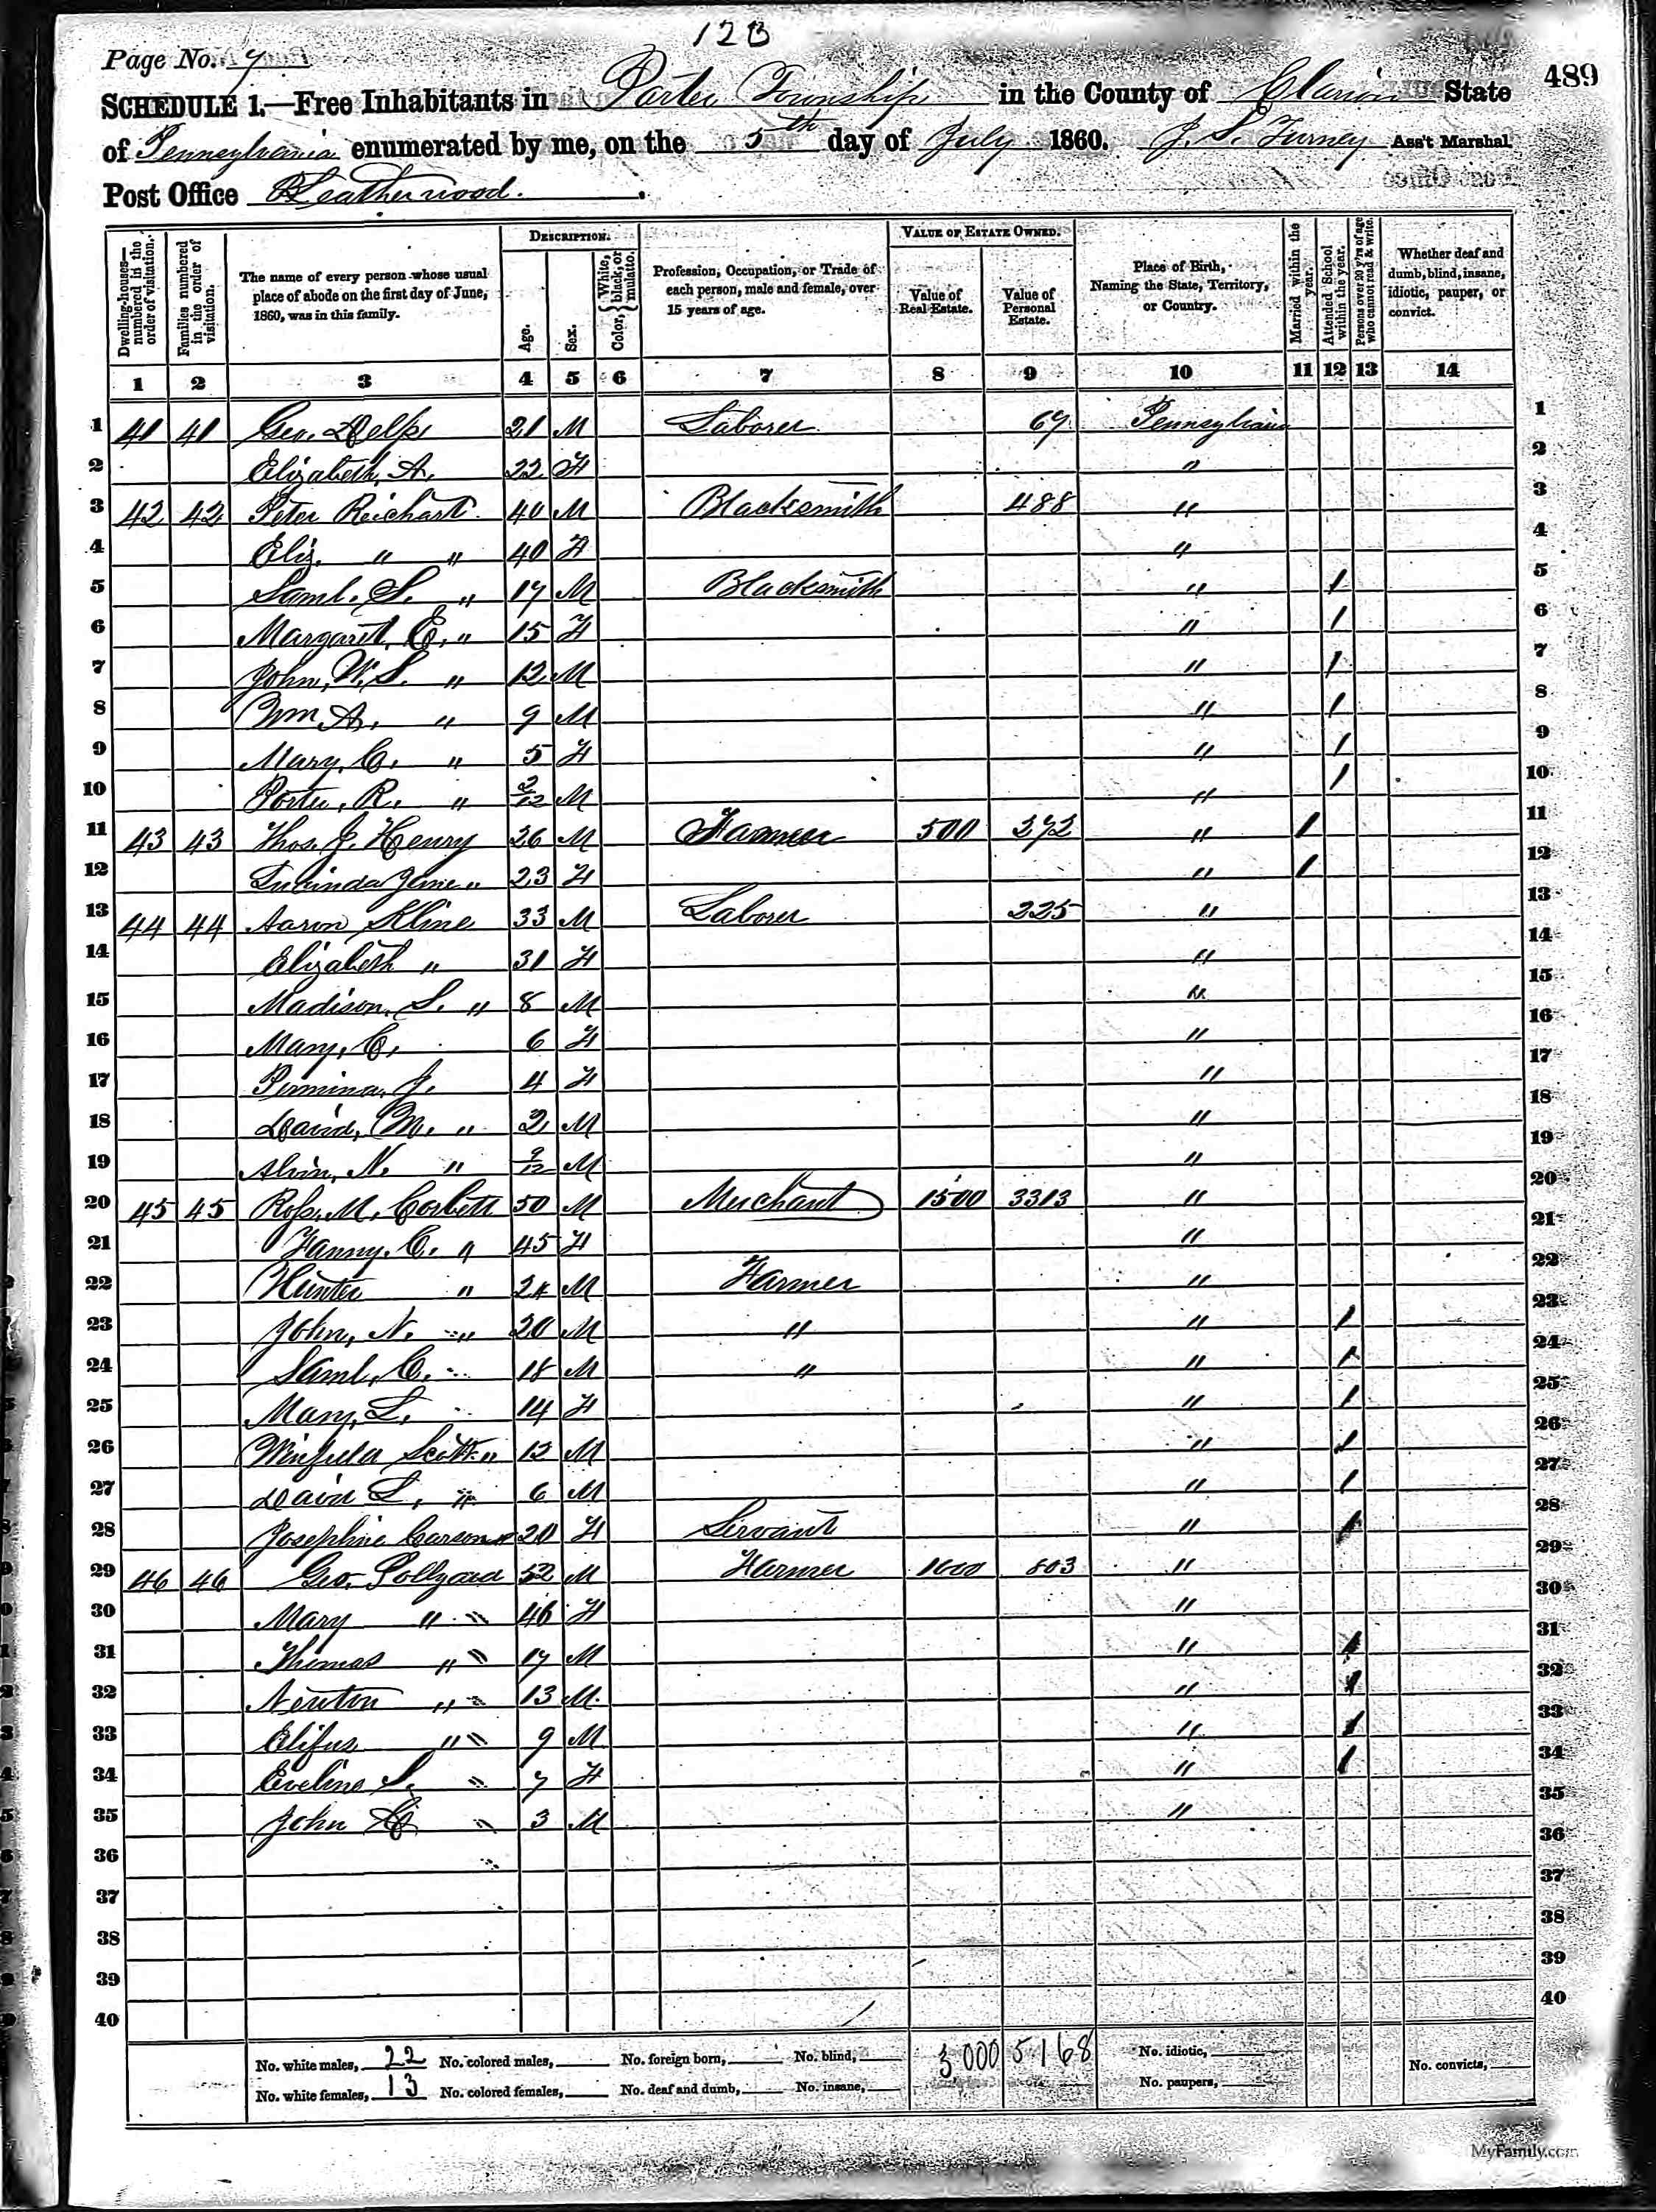 12B
Page No. 7
489
SCHEDULE 1.—Free Inhabitants in Porter Township in the County of Clarion State
of Pennsylvania enumerated by me, on the 5th day of July 1860. J. S. Turney Ass't Marshal.
Post Office Leatherwood.
Dwelling-houses—numbered in the order of visitation.
Families numbered in the order of visitation.
The name of every person whose usual place of abode on the first day of June, 1860, was in this family.
DESCRIPTION.
Age.
Sex.
Color, { White, black, or mulatto.
Profession, Occupation, or Trade of each person, male and female, over 15 years of age.
VALUE OF ESTATE OWNED.
Value of Real Estate.
Value of Personal Estate.
Place of Birth, Naming the State, Territory, or Country.
Married within the year.
Attended School within the year.
Persons over 20 y'rs of age who cannot read & write.
Whether deaf and dumb, blind, insane, idiotic, pauper, or convict.
1 2 3 4 5 6 7 8 9 10 11 12 13 14
1 41 41 Geo. Delp 21 M Laborer 67 Pennsylvania 1
2 Elizabeth, A. 22 F " 2
3 42 42 Peter Reichart 40 M Blacksmith 488 " 3
4 Eliz. " " 40 F " 4
5 Saml. S. " 17 M Blacksmith " / 5
6 Margaret, E. " 15 F " / 6
7 John, W. S. " 12 M " / 7
8 Wm. A. " 9 M " / 8
9 Mary, C. " 5 F " / 9
10 Porter, R. " 2/12 M " / 10
11 43 43 Thos. J. Henry 26 M Farmer 500 272 " / 11
12 Lucinda Jane " 23 F " / 12
13 44 44 Aaron Kline 33 M Laborer 225 " 13
14 Elizabeth " 31 F " 14
15 Madison, S. " 8 M " 15
16 Mary, C. 6 F " 16
17 Permina, J. 4 F " 17
18 David, M. " 2 M " 18
19 Alvin, N. " 9/12 M " 19
20 45 45 Ross, M. Corbett 50 M Merchant 1500 3313 " 20
21 Fanny, C. " 45 F " 21
22 Hunter " 24 M Farmer " 22
23 John, N. " 20 M " " / 23
24 Saml, C. " 18 M " " / 24
25 Mary, L. 14 F " / 25
26 Winfield Scott " 12 M " / 26
27 David L. " 6 M " / 27
28 Josephine Carson 20 F Servant " / 28
29 46 46 Geo. Polyard 52 M Farmer 1000 803 " 29
30 Mary " " 46 F " 30
31 Thomas " " 17 M " / 31
32 Newton " " 13 M " / 32
33 Elifus " " 9 M " / 33
34 Eveline S. " 7 F " / 34
35 John " 3 M " 35
36 36
37 37
38 38
39 39
40 40
No. white males, 22 No. colored males, No. foreign born, No. blind, 3000 5168 No. idiotic, No. convicts,
No. white females, 13 No. colored females, No. deaf and dumb, No. insane, No. paupers,
MyFamily.com